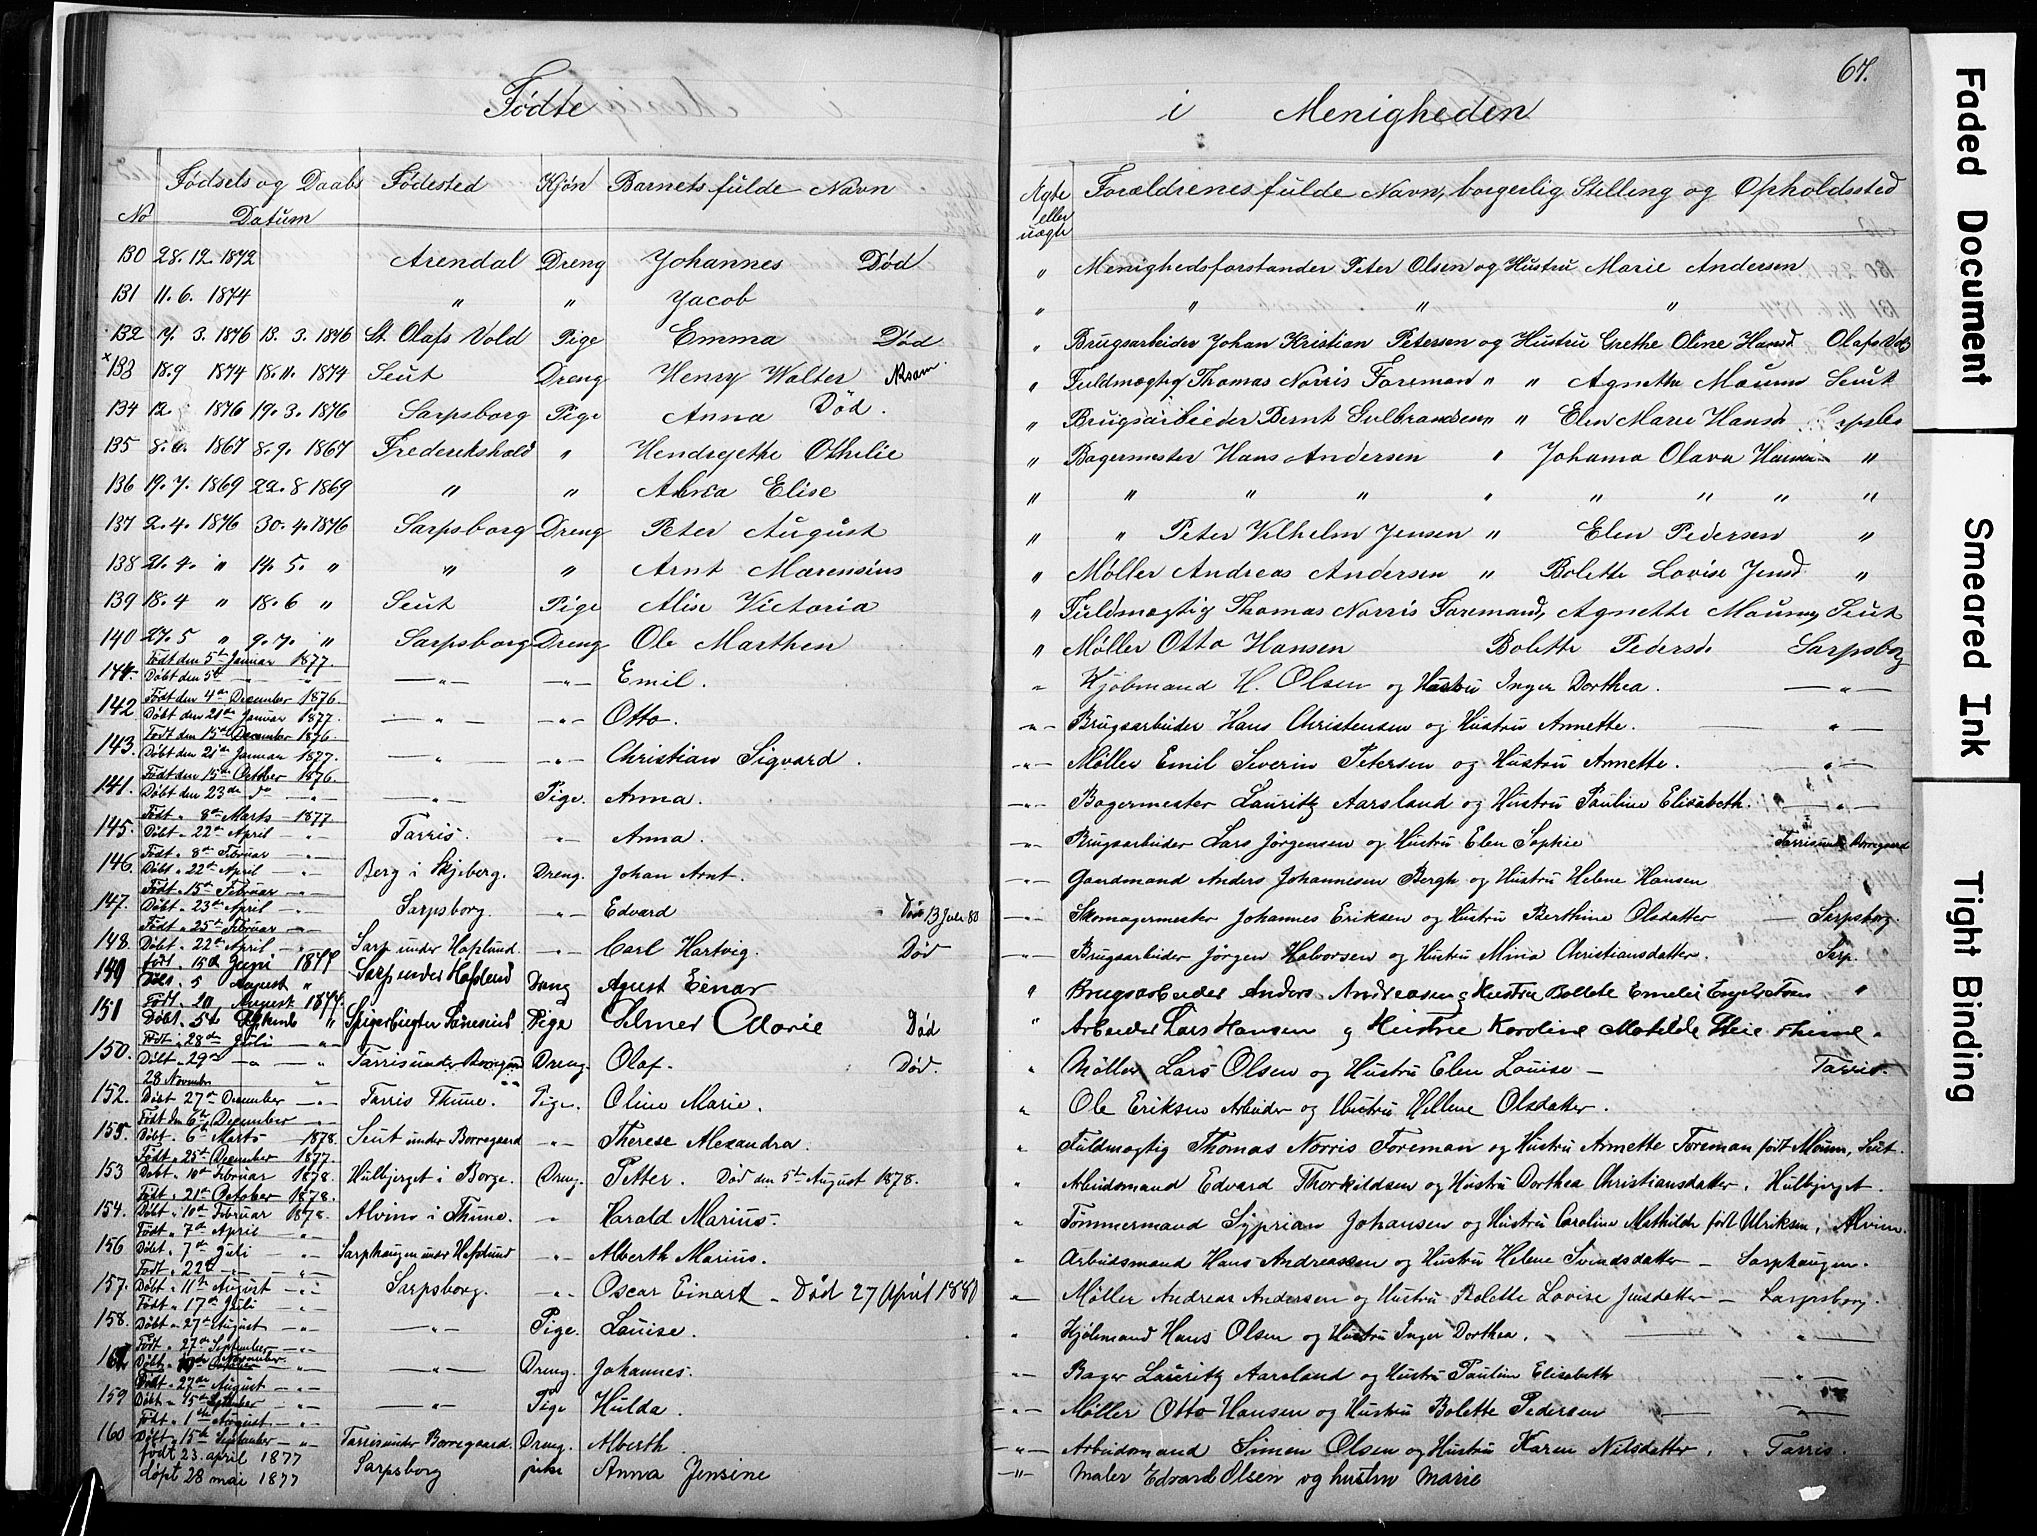 67.
Fødte i Menigheden
No Fødsels og Daabs Datum Fødested Kjøn Barnets fulde Navn Ægte eller uægte Forældrenes fulde Navn, borgerlig Stilling og Opholdssted
130 28.12.1872 Arendal Dreng Johannes Død " Menighedsforstander Peter Olsen og Hustru Marie Andersen
131 11.6.1874 " " Jacob " " " "
132 17.3.1876 13.3.1876 St. Olafs Vold Pige Emma Død " Brugsarbeider Johan Kristian Petersen og Hustru Grethe Oline Hansd Olafs Vold
x 133 18.9 1874 18.11.1874 Seut Dreng Henry Walter " Fuldmægtig Thomas Norris Foreman " " Agnethe Moum Seut
134 12. 1876 19.3.1876 Sarpsborg Pige Anna Død. " Brugsarbeider Bernt Gulbrandsen " " Elen Marie Hansd
135 8.6.1867 8.9.1867 Frederikshald " Hendregethe Othilie " Bagermester Hans Andersen " Johanna Olava Hansen "
136 19.7.1869 22.8 1869 " " Alma Elise " " " " " " " " "
137 2.4.1876 30.4.1876 Sarpsborg Dreng Peter August " " Peter Vilhelm Jensen " Elen Pedersen "
138 21.4. " 14.5. " " " Arnt Marensius " Møller Andreas Andersen " Bolette Lovise Jensd "
139 18.4 " 18.6 " Seut Pige Alise Victoria " Fuldmægtig Thomas Norris Foremand, Agnette Moum Seut
140 27.5 " 9.7. " Sarpsborg Dreng Ole Marthen " Møller Otto Hansen Bolette Pedersd Sarpsborg
144. Født den 5te Januar 1877. Døbt den 5te — " — " —"— —"— Emil. " Kjøbmand H. Olsen og Hustru Inger Dorthea. —"—
142 Født den 4de December 1876. Døbt den 21de Januar 1877. —"— —"— Otto. —"— Brugsarbeider Hans Christensen og Hustru Annette. —"—
143. Født den 15de December 1876. Døbt den 21de Januar 1877. —"— —"— Christian Sigvard. —"— Møller Emil Severin Petersen og Hustru Annette. —"—
141. Født den 15de October 1876. Døbt den 23de do —"— —"— Pige. Anna. —"— Bagermester Lauritz Aarsland og Hustru Pauline Elisabeth. —"—
145. Født " 8de Marts 1877 Døbt " 22de April —"— Tarris. —"— Anna. —"— Brugsarbeider Lars Jørgensen og Hustru Elen Sophie Tarris und Borregaard
146. Født " 8de Februar —"— Døbt " 22de April —"— Berg i Skjeberg. Dreng. Johan Arnt. —"— Gaardmand Anders Johannesen Bergh og Hustru Helene Hansen
147. Født " 15de Februar —"— Døbt " 23de April —"— Sarpsborg. —"— Edvard Død 13 Juli 80 —"— Skomagermester Johannes Eriksen og Hustru Berthine Olsdatter — Sarpsborg.
148. Født " 25de Februar —"— Døbt " 22de April —"— Sarp under Haflund. —"— Carl Hartvig. Død —"— Brugsarbeider Jørgen Halvorsen og Hustru Mina Christiansdatter. Sarp.
149 født " 15de Juni 1877 5 August " Sarp under Hafslund Dreng Agust Einar " Brugsarbeider Anders Andreasen og Hustru Bollete Emelie "
151 Født " 20 August 1877. Døbt " 5te " Pige Selmer Marie Død " Arbeider Lars Hansen og Hustrue Karoline Matilde
150. Født " 28de Juli —"— Døbt " 29de —"— —"— Tarris under Borregaard Dreng. Olaf. Død. " Møller Lars Olsen og Hustru Elen Louise — Tarris.
152. 28 November " Døbt 27de December —"— Tarris Thune. Pige. Oline Marie. " Ole Eriksen Arbeider og Hustru Hellene Olsdatter.
155. Født den 6te December —"— Døbt " 6te Marts — 1878. Seut under Borregaard —"— Therese Alexandra. " Fuldmægtig Thomas Norris Foreman og Hustru Annette Foreman født Moum, Seut.
153 Født " 25de December 1877. Døbt " 10de Februar 1878. Hulbjerget i Borge. Dreng. Petter. Død den 5te August 1878. " Arbeidsmand Edvard Thorkildsen og Hustru Dorthea Christiansdatter. Hulbjerget.
154. Født " 21de October 1878. Døbt " 10de Februar 1878. Alvim i Thune. —"— Harald Marius. " Tømmermand Syprian Johansen og Hustru Caroline Mathilde født Ulriksen, Alvim.
156 Født " 7de April —"— Døbt " 7de Juli —"— Sarphaugen under Hafslund —"— Alberth Marius. " Arbeidsmand Hans Andreassen og Hustru Helene Svendsdatter — Sarphaugen.
157. Født " 22de —"— —"— Døbt " 11te August —"— Sarpsborg. —"— Oscar Einart — Død 27 April 1880 " Møller Andreas Andersen og Hustru Bolette Lovise Jensdatter — Sarpsborg.
158. Født " 17de Juli —"— Døbt " 27de August —"— —"— Pige. Louise. " Kjøbmand Hans Olsen og Hustru Inger Dorthea. —"—
Født " 27de September —"— Døbt —"— —"— Dreng. Johannes. —"— Bager Lauritz Aarsland og Hustru Pauline Elisabeth —"—
159 Født " 27de August —"— Døbt " 15de September —"— —"— Pige Hulda. —"— Møller Otto Hansen og Hustru Bolette Pedersen —"—
160 Født " 1ste August —"— Døbt " 15de September —"— Tarris under Borregaard. Dreng. Alberth. —"— Arbeidsmand Simen Olsen og Hustru Karen Nilsdatter. Tarris.
født 23. april 1877 døpt 28 mai 1877 Sarpsborg pike Anna Jensine —"— Maler Edvard Olsen og hustru Marie
Faded Document
Smeared Ink
Tight Binding